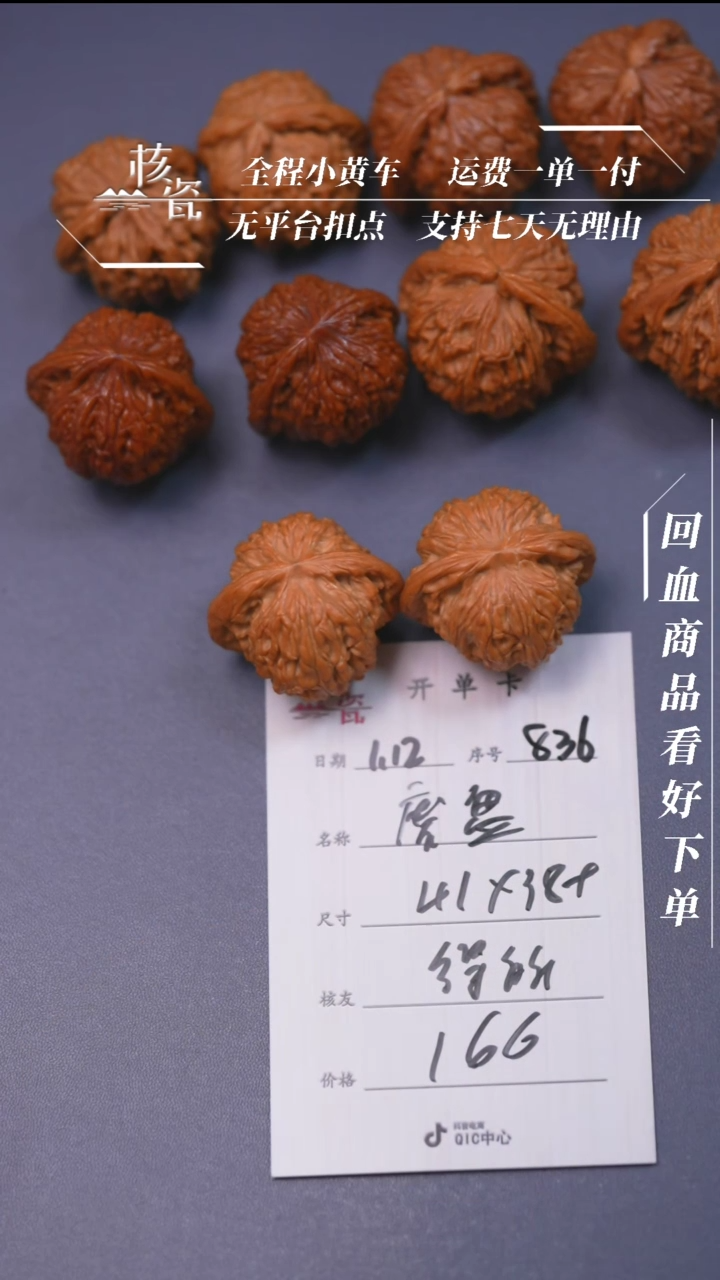 核瓷
全程小黄车 运费一单一付
无平台扣点 支持七天无理由
回血商品看好下单
瓷
开单卡
日期 1.12 序号 836
名称 磨盘
尺寸 41×38+
核友
价格 166
抖音电商
QIC中心